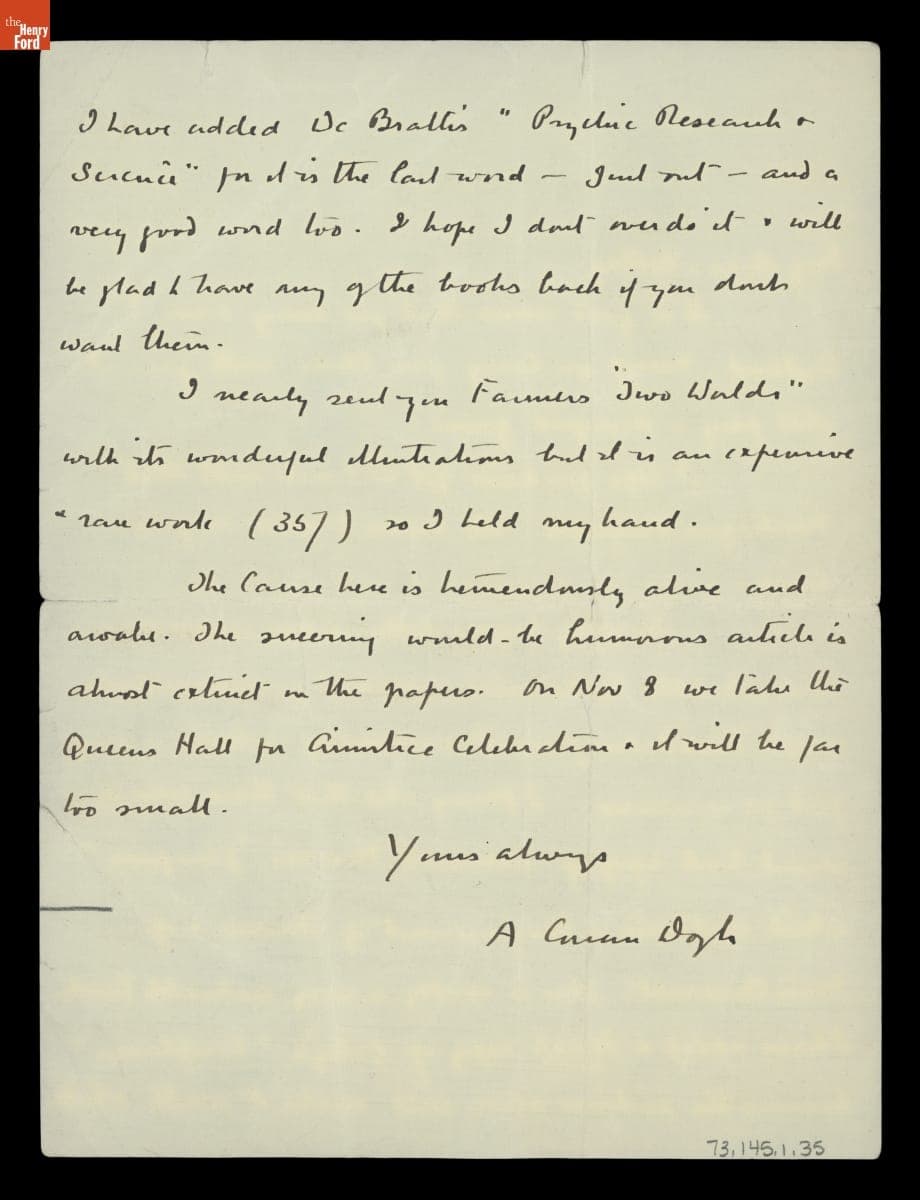 the
Henry
Ford
I have added De Bratti's " Psychic Research &
Science" for it is the last word – Just out – and a
very good word too. I hope I dont overdo it & will
be glad to have any of the books back if you dont
want them.
I nearly sent you Farmers "Two Worlds"
with its wonderful illustrations but it is an expensive
& rare work (35/) so I held my hand.
The Cause here is tremendously alive and
awake. The sneering would-be humorous article is
almost extinct in the papers. On Nov 8 we take the
Queens Hall for Armistice Celebration & it will be far
too small.
Yours always
A Conan Doyle
73.145.1.35